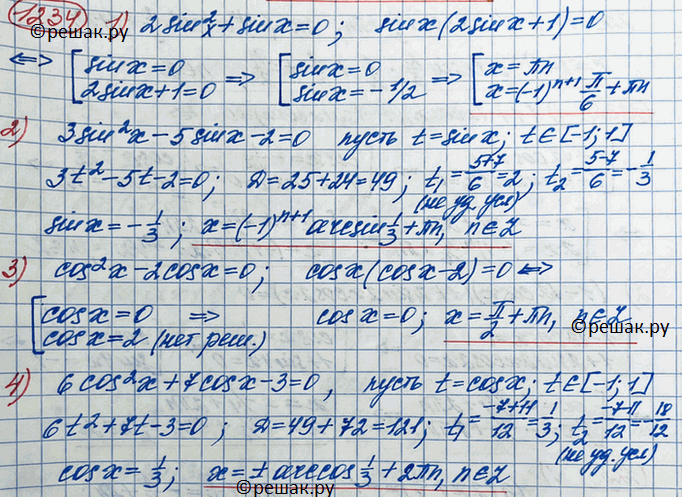 1234 1) 2sin²x + sinx = 0; sinx(2sinx+1) = 0
©решак.ру
⟺ [ sinx = 0 ⇒ [ sinx = 0 ⇒ [ x = πn
2sinx+1 = 0 sinx = -1/2 x = (-1)ⁿ⁺¹ π/6 + πn
2) 3sin²x - 5sinx - 2 = 0 пусть t = sinx; t∈[-1;1]
3t² - 5t - 2 = 0; D = 25+24 = 49; t₁ = (5+7)/6 = 2; t₂ = (5-7)/6 = -1/3
(не уд. усл)
sinx = -1/3; x = (-1)ⁿ⁺¹ arcsin 1/3 + πn, n∈Z
3) cos²x - 2cosx = 0; cosx(cosx-2) = 0 ⟺
[ cosx = 0 ⇒ cosx = 0; x = π/2 + πn, n∈Z
cosx = 2 (нет реш.)
©решак.ру
4) 6cos²x + 7cosx - 3 = 0, пусть t = cosx; t∈[-1;1]
6t² + 7t - 3 = 0; D = 49 + 72 = 121; t₁ = (-7+11)/12 = 1/3; t₂ = (-7-11)/12 = -18/12
(не уд. усл)
cosx = 1/3; x = ± arccos 1/3 + 2πn, n∈Z
©решак.ру